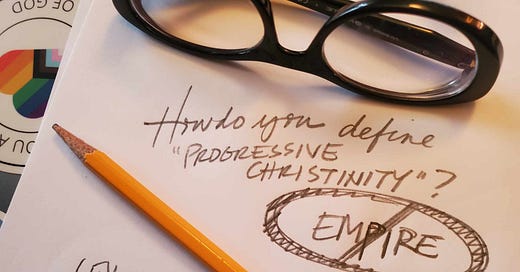 OF GOD
YOU A
How do you define
"PROGRESSIVE
CHRISTINITY"?
EMPIRE